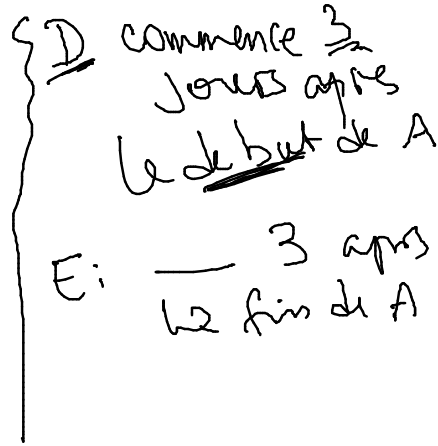 D commence 3
jours après
le debut de A
E: ___ 3 après
la fin de A